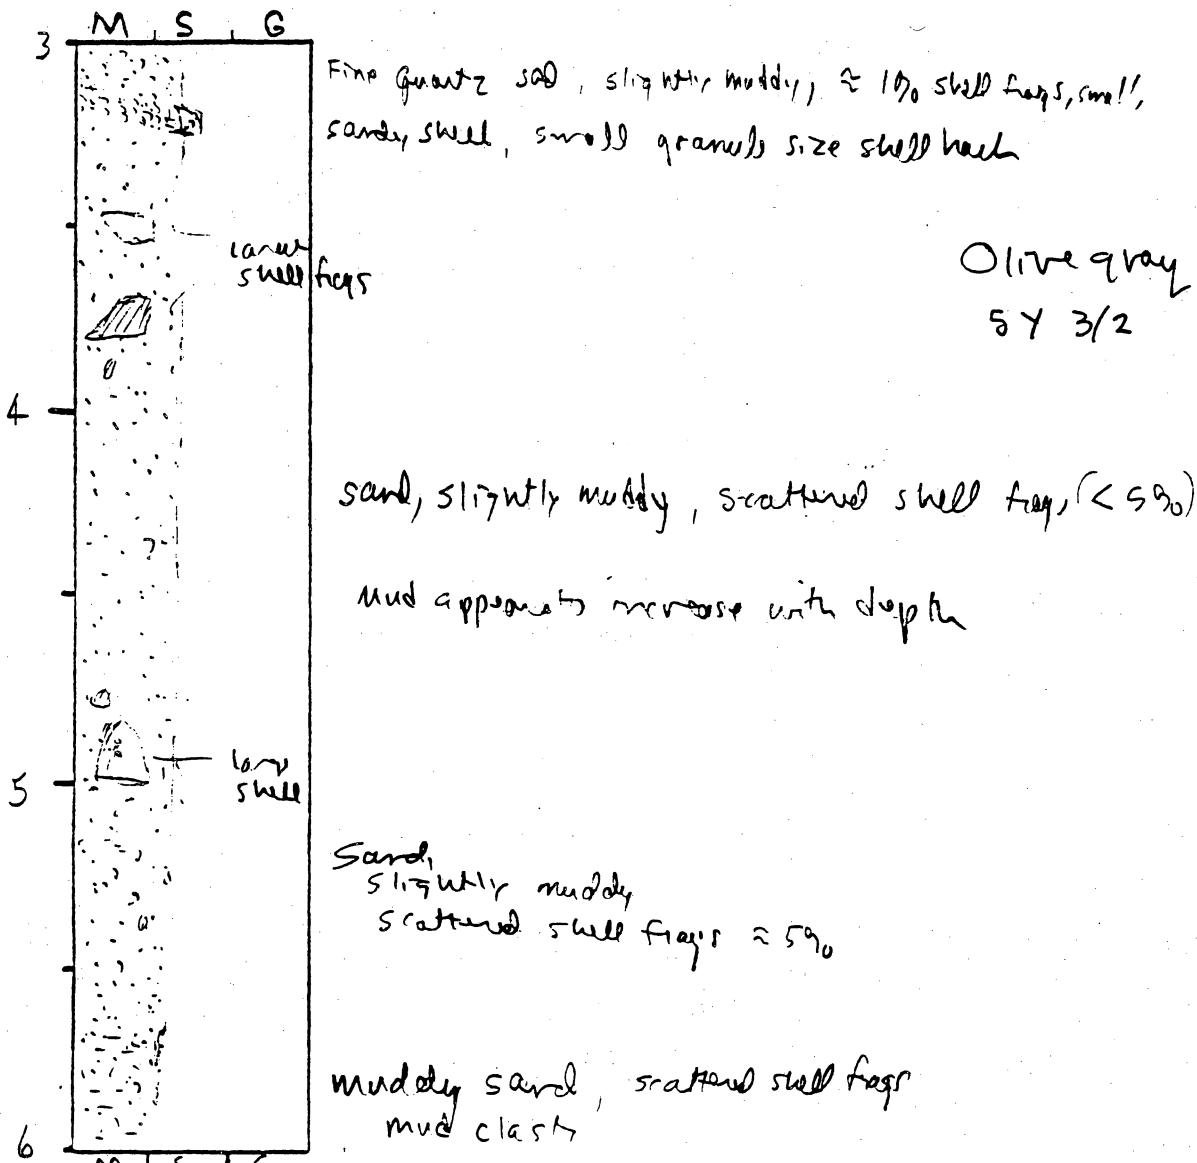 M S G
3
Fine Quartz sad, slightly muddy, ≈ 1% shell frags, small,
sandy shell, small granule size shell hash
larger
shell frags
Olive gray
5Y 3/2
4
sand, slightly muddy, scattered shell frags (< 5%)
Mud appears to increase with depth
large
shell
5
Sand,
slightly muddy
scattered shell frags ≈ 5%
muddy sand, scattered shell frags
mud clasts
6
M S G